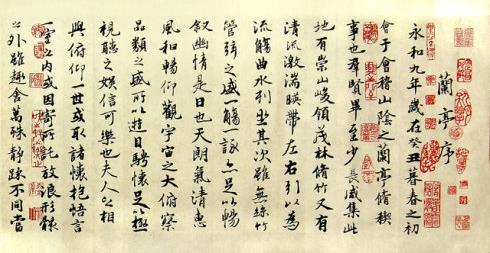 蘭亭序
永和九年歲在癸丑暮春之初
會于會稽山陰之蘭亭脩稧
事也羣賢畢至少長咸集此
地有崇山峻領茂林脩竹又有
清流激湍暎帶左右引以為
流觴曲水列坐其次雖無絲竹
管弦之盛一觴一詠亦足以暢
叙幽情是日也天朗氣清惠
風和暢仰觀宇宙之大俯察
品類之盛所以遊目騁懷足以極
視聽之娛信可樂也夫人之相
與俯仰一世或取諸懷抱悟言
一室之内或因寄所託放浪形骸
之外雖趣舍萬殊静躁不同當